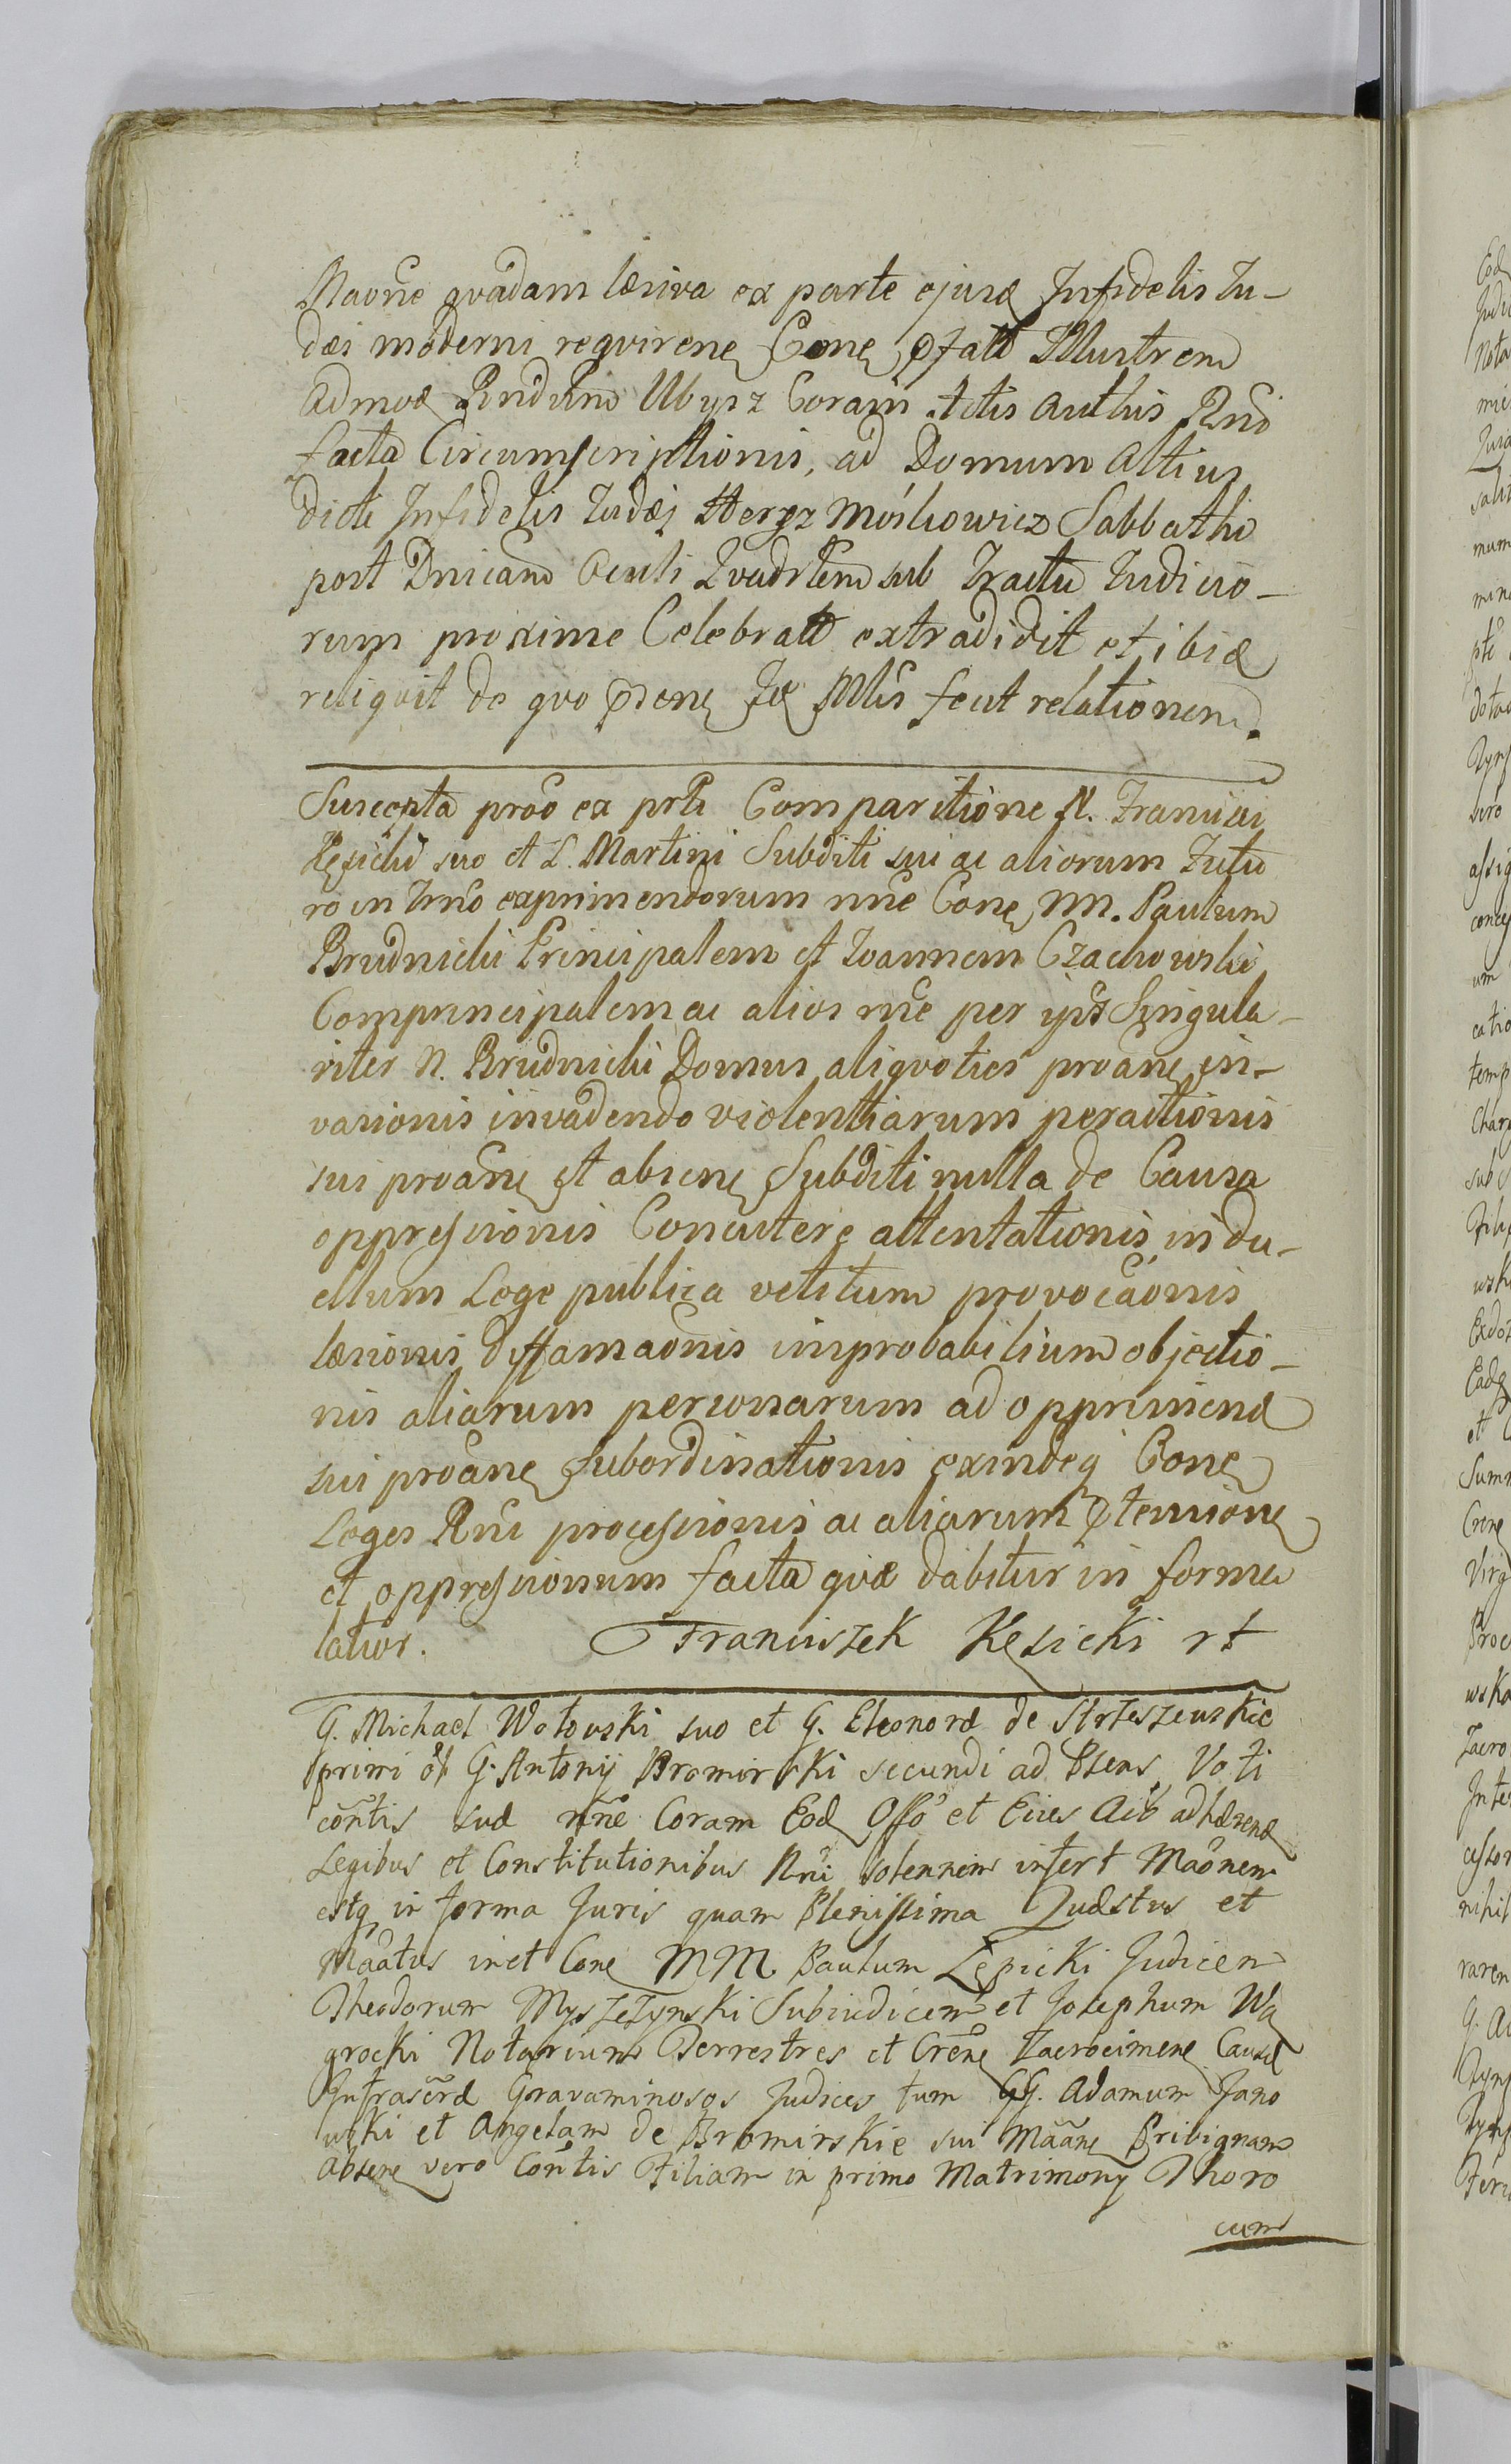 Maone qvadam læsiva ex parte ejusd Infidelis Ju-
dæi moderni reqvirenē Conē pfatt Illustrem
Admod Rndum Ubysz Coram totis Actibus Rnō
facta Circumscriptionis, ad Domum altius
dicti Infidelis Judæi Hersz Moskowicz Sabbatho
post Dnicam Oculi Qvadrlem sub Tractu Judicio-
rum proxime Celebratt extradidit et ibid
reliqvit de qvo psenē Jē Mlis fecit relationem.
Suscepta proō ex prti Comparitione N. Francisci
Kęsicki suo et L. Martini Subditi sui ac aliorum Futu
ro in Tmō exprimendorum nnē Conē NN. Paulum
Brudnicki Principalem et Joannem Czachowski
Comprincipalem ac alios rnē per ipst Singula-
riter N. Brudnicki Domus aliqvoties proanē in-
vasionis invadendo violentiarum peractionis
sui proanē et absenē Subditi nulla de Causa
oppressionis Concutere attentationis in du-
ellum Lege publica vetitum provocāonis
læsionis diffamaōnis improbabilium objectio-
nis aliarum personarum ad opprimend
sui proanē subordinationis exindeq Conē
Leges Rni processionis ac aliarum ptensionē
et oppressionum facta qvæ dabitur in forma
latior. Franciszek Kęsicki rt
G. Michael Wołowski suo et G. Eleonoræ de Strzeszewskie
primi et G. Antonij Bromirski secundi ad Psens Voti
cōntis suæ nnē Coram Eod Offō et Eius Actō adhærend
Legibus et Constitutionibus Rni solennem infert Maōnem
estq in forma Juris quam Plenissima Questus et
Maātus inct Conē MM Paulum Lępicki Judicem
Theodorum Myszczynski Subiudicem et Josephum Wą
grocki Notarium Terrestres et Crēnē Zacrocimenē Causæ
Infrascræ Gravaminosos Judices tum GG. Adamum Jano
wski et Angelam de Bromirskie sui Maānē Privignam
Absenē vero Cōntis Filiam in primo Matrimonij Thoro
cum